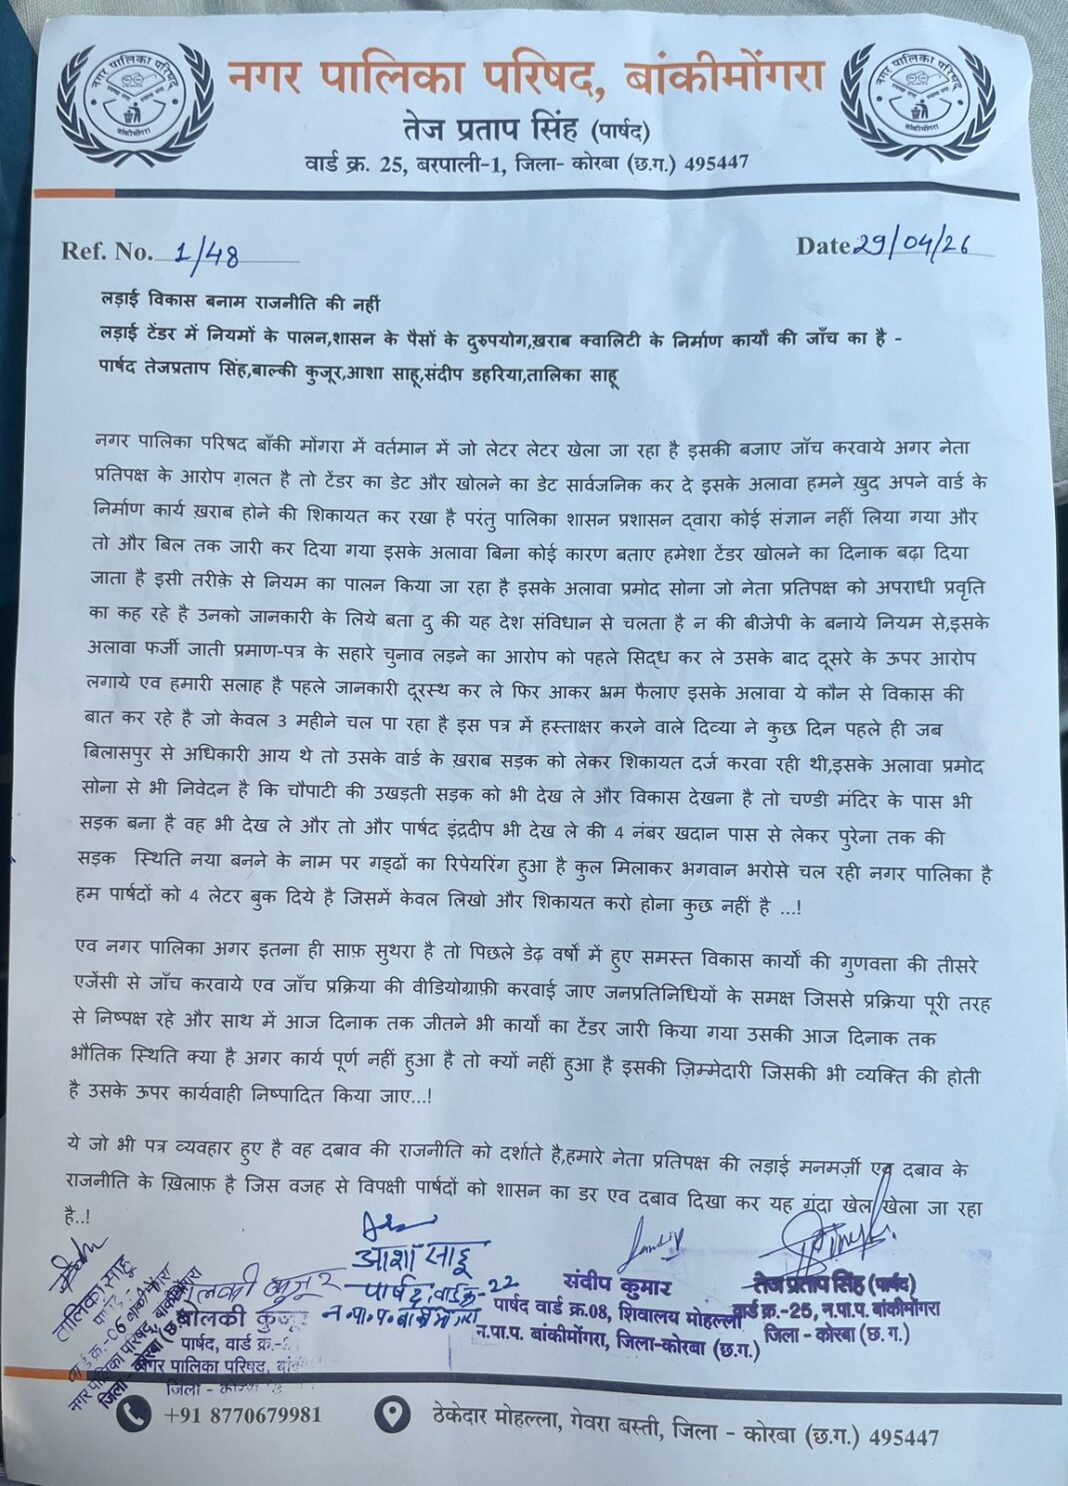 नगर पालिका परिषद, बांकीमोंगरा
तेज प्रताप सिंह (पार्षद)
वार्ड क्र. 25, बरपाली-1, जिला- कोरबा (छ.ग.) 495447
नगर पालिका परिषद
बांकीमोंगरा
नगर पालिका परिषद
बांकीमोंगरा
Ref. No. 1/48
Date 29/04/26
लड़ाई विकास बनाम राजनीति की नहीं
लड़ाई टेंडर में नियमों के पालन,शासन के पैसों के दुरुपयोग,ख़राब क्वालिटी के निर्माण कार्यों की जाँच का है -
पार्षद तेजप्रताप सिंह,बाल्की कुजूर,आशा साहू,संदीप डहरिया,तालिका साहू
नगर पालिका परिषद बाँकी मोंगरा में वर्तमान में जो लेटर लेटर खेला जा रहा है इसकी बजाए जाँच करवाये अगर नेता
प्रतिपक्ष के आरोप ग़लत है तो टेंडर का डेट और खोलने का डेट सार्वजनिक कर दे इसके अलावा हमने ख़ुद अपने वार्ड के
निर्माण कार्य ख़राब होने की शिकायत कर रखा है परंतु पालिका शासन प्रशासन द्वारा कोई संज्ञान नहीं लिया गया और
तो और बिल तक जारी कर दिया गया इसके अलावा बिना कोई कारण बताए हमेशा टेंडर खोलने का दिनाक बढ़ा दिया
जाता है इसी तरीक़े से नियम का पालन किया जा रहा है इसके अलावा प्रमोद सोना जो नेता प्रतिपक्ष को अपराधी प्रवृति
का कह रहे है उनको जानकारी के लिये बता दु की यह देश संविधान से चलता है न की बीजेपी के बनाये नियम से,इसके
अलावा फर्जी जाती प्रमाण-पत्र के सहारे चुनाव लड़ने का आरोप को पहले सिद्ध कर ले उसके बाद दूसरे के ऊपर आरोप
लगाये एव हमारी सलाह है पहले जानकारी दूरस्थ कर ले फिर आकर भ्रम फैलाए इसके अलावा ये कौन से विकास की
बात कर रहे है जो केवल 3 महीने चल पा रहा है इस पत्र में हस्ताक्षर करने वाले दिव्या ने कुछ दिन पहले ही जब
बिलासपुर से अधिकारी आय थे तो उसके वार्ड के ख़राब सड़क को लेकर शिकायत दर्ज करवा रही थी,इसके अलावा प्रमोद
सोना से भी निवेदन है कि चौपाटी की उखड़ती सड़क को भी देख ले और विकास देखना है तो चण्डी मंदिर के पास भी
सड़क बना है वह भी देख ले और तो और पार्षद इंद्रदीप भी देख ले की 4 नंबर खदान पास से लेकर पुरेना तक की
सड़क स्थिति नया बनने के नाम पर गड्ढों का रिपेयरिंग हुआ है कुल मिलाकर भगवान भरोसे चल रही नगर पालिका है
हम पार्षदों को 4 लेटर बुक दिये है जिसमें केवल लिखो और शिकायत करो होना कुछ नहीं है ...!
एव नगर पालिका अगर इतना ही साफ़ सुथरा है तो पिछले डेढ़ वर्षों में हुए समस्त विकास कार्यों की गुणवत्ता की तीसरे
एजेंसी से जाँच करवाये एव जाँच प्रक्रिया की वीडियोग्राफ़ी करवाई जाए जनप्रतिनिधियों के समक्ष जिससे प्रक्रिया पूरी तरह
से निष्पक्ष रहे और साथ में आज दिनाक तक जीतने भी कार्यों का टेंडर जारी किया गया उसकी आज दिनाक तक
भौतिक स्थिति क्या है अगर कार्य पूर्ण नहीं हुआ है तो क्यों नहीं हुआ है इसकी ज़िम्मेदारी जिसकी भी व्यक्ति की होती
है उसके ऊपर कार्यवाही निष्पादित किया जाए...!
ये जो भी पत्र व्यवहार हुए है वह दबाव की राजनीति को दर्शाते है,हमारे नेता प्रतिपक्ष की लड़ाई मनमर्ज़ी एव दबाव के
राजनीति के ख़िलाफ़ है जिस वजह से विपक्षी पार्षदों को शासन का डर एव दबाव दिखा कर यह गंदा खेल खेला जा रहा
है..!
तालिका साहू
नगर पालिका परिषद, बांकीमोंगरा
जिला - कोरबा (छ.ग.)
बालकी कुजूर
पार्षद, वार्ड क्र.-
नगर पालिका परिषद,
जिला -
आशा साहू
पार्षद, वार्ड क्र-22
न.पा.प. बांकीमोंगरा
संदीप कुमार
पार्षद वार्ड क्र.08, शिवालय मोहल्ला
न.पा.प. बांकीमोंगरा, जिला-कोरबा (छ.ग.)
तेज प्रताप सिंह (पार्षद)
वार्ड क्र.-25, न.पा.प. बांकीमोंगरा
जिला - कोरबा (छ.ग.)
+91 8770679981
ठेकेदार मोहल्ला, गेवरा बस्ती, जिला - कोरबा (छ.ग.) 495447